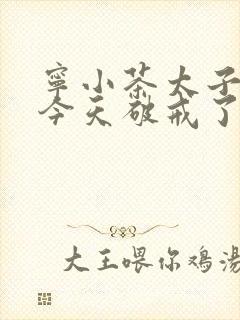 寧小茶太子
今天破戒了
大王喂你鸡湯